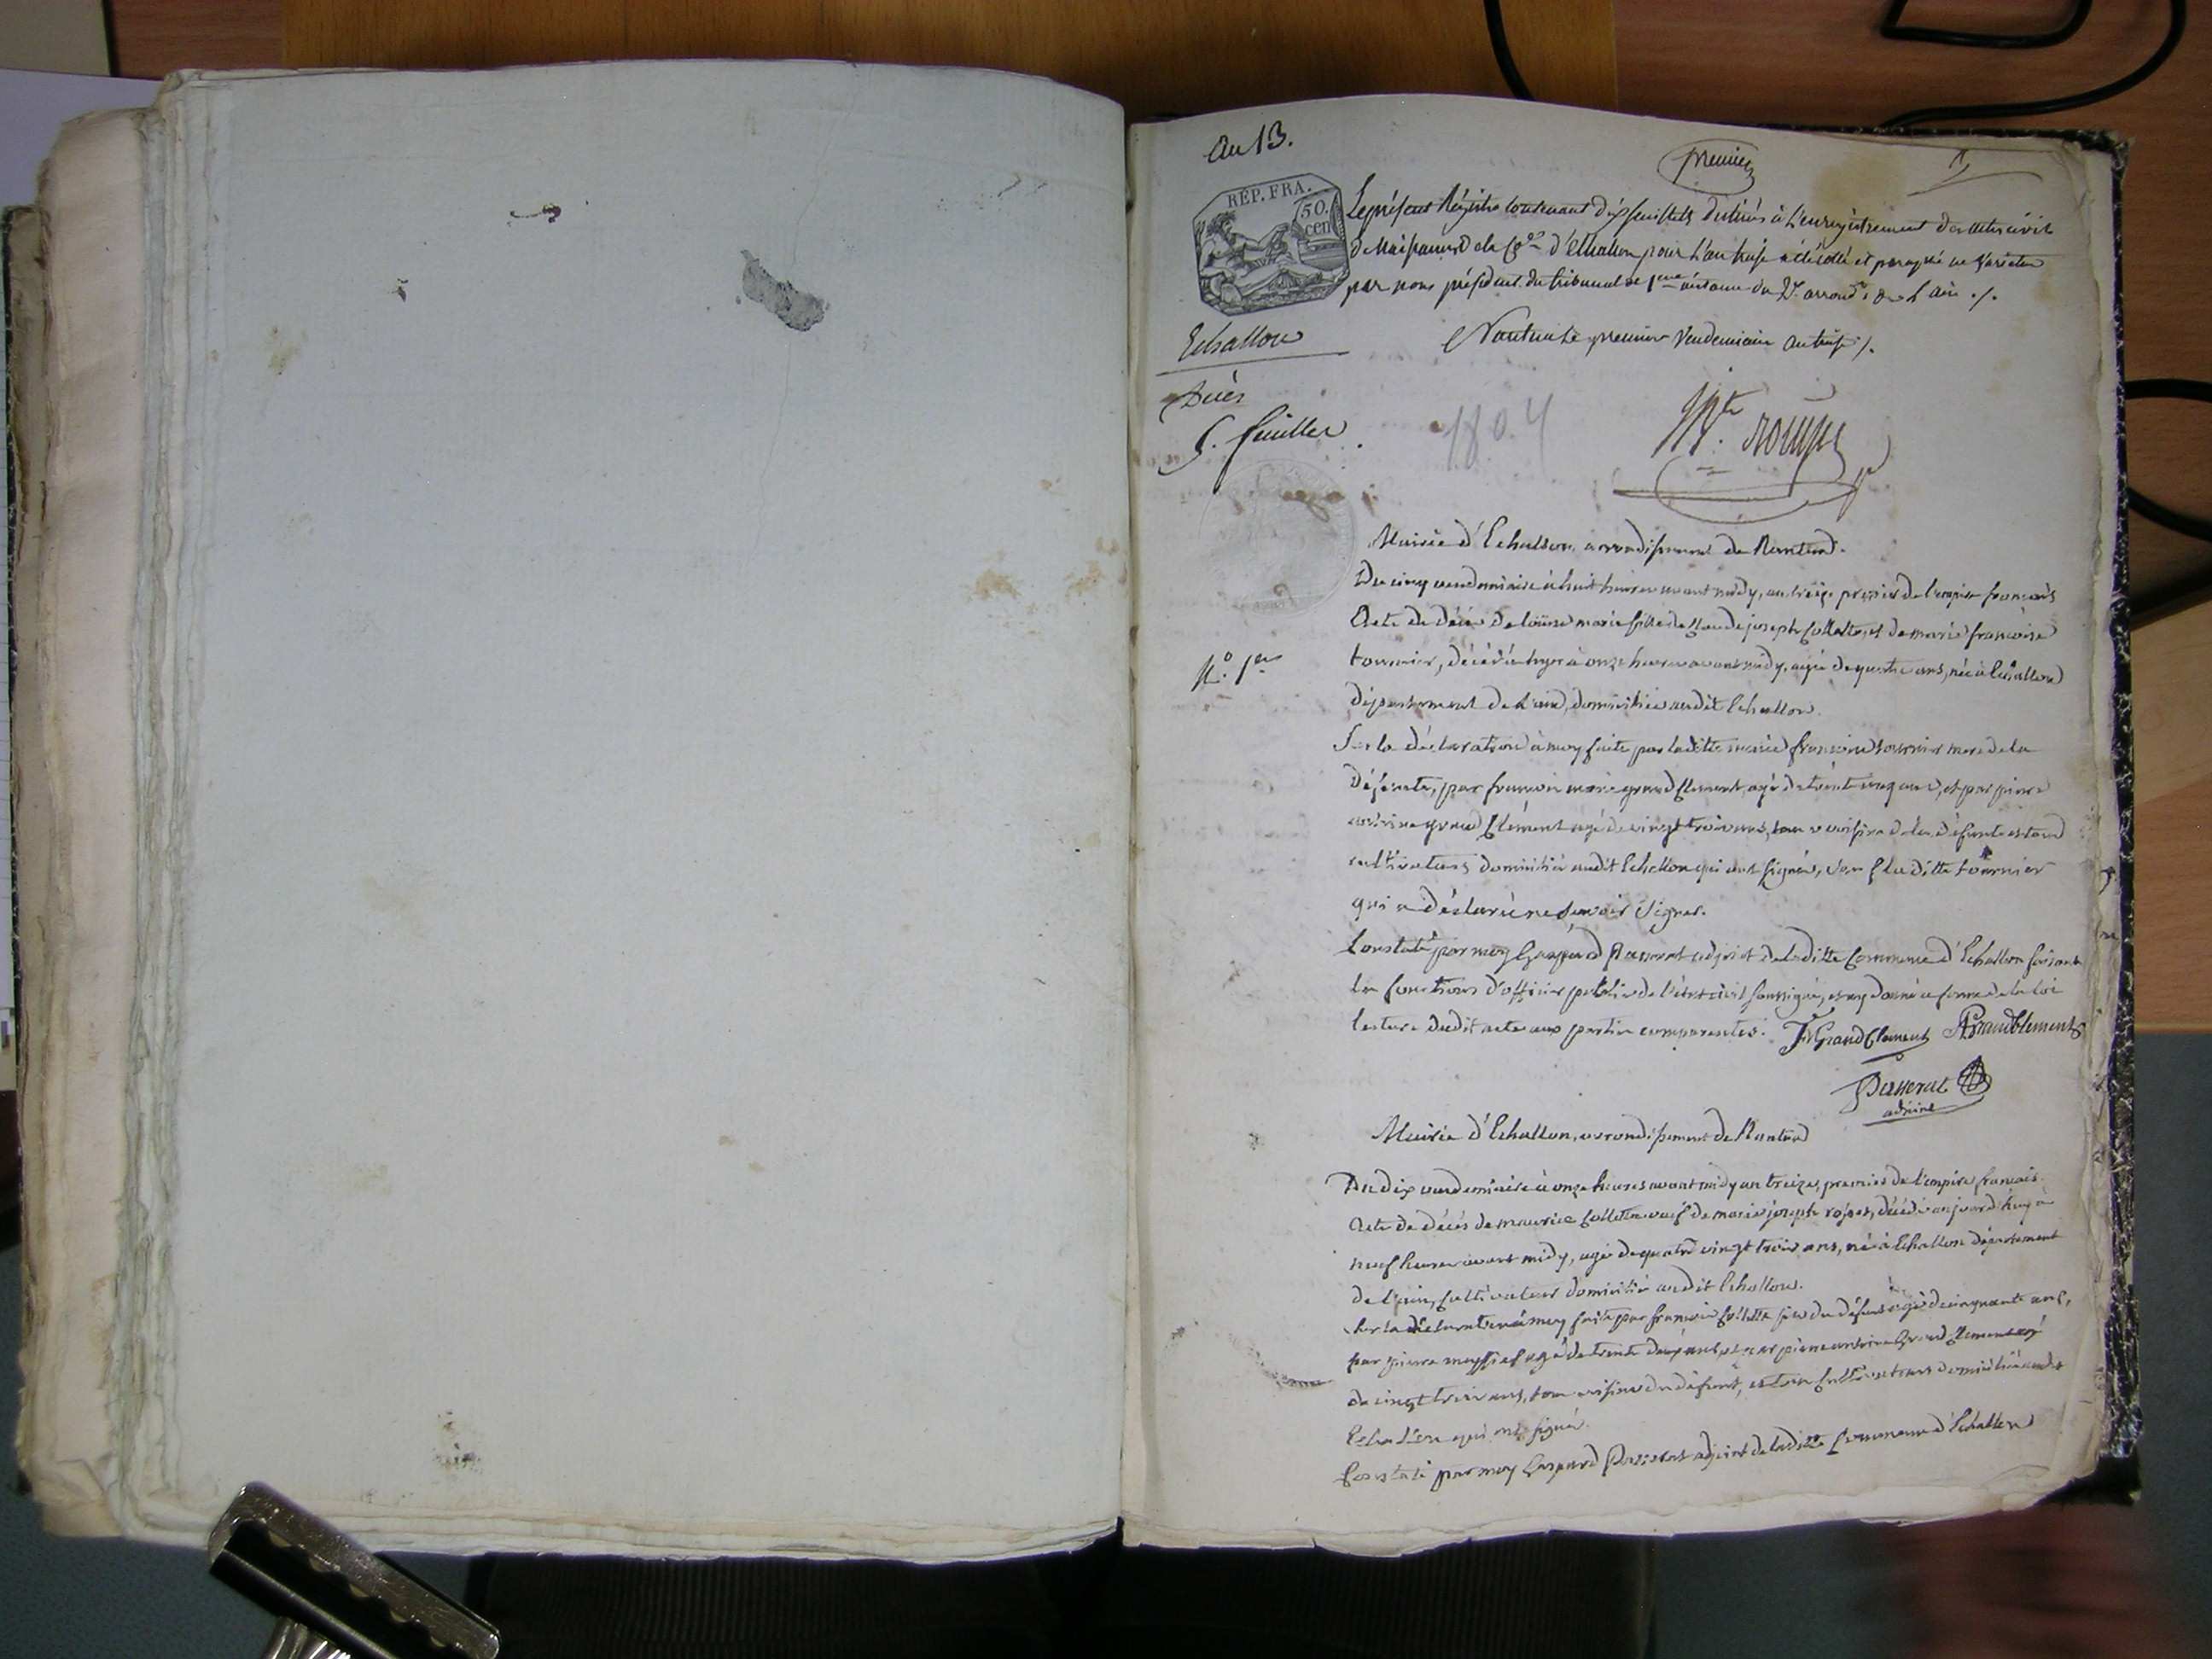 An 13.
premier
1
RÉP. FRA.
50.
cen
Le présent Régistre contenant dix feuillets destinés à L'enregistrement des actes civils
de Naissances de la Cne d'Echallon pour L'an treize a été côté et paraphé ne varietur
par nous président du tribunal de 1ere instance du 2e. arrondt. de L'ain ./.
Echallon
Nantua Le premier Vendemiaire an treize ./.
Décès
5. feuillet
1804
Mairie d'Echallon, arrondissement de Nantua.
Du cinq vendemiaire à huit heures avant midy, an treize premier de l'empire français
Acte de décès de Loüise marie fille de Claude joseph Collette, et de marie françoise
N.o 1er
tournier, décédée hyer à onze heures avant midy, agée de quatre ans, née à Echallon
département de L'ain, domiciliée audit Echallon.
Sur la déclaration à moy faite par laditte marie françoise tournier mere de la
défunte, par françois marie grand Clement, agé de trente cinq ans, et par pierre
antoine grand Clément agé de vingt trois ans, tous voisins de la défunte et tous
cultivateurs domiciliés audit Echallon qui ont signés, sauf laditte tournier
qui a déclaré ne savoir signer.
Constaté par moy Gaspard Passerat adjoint de laditte Commune d'Echallon faisant
les fonctions d'officier public de l'état civil soussigné, et ay donné a forme de la loi
lecture dudit acte aux parties comparentes. FMGrandClement AGrandClement
Passerat
adjoint
Mairie d'Echallon, arrondissement de Nantua
Du dix vendemiaire à onze heures avant midy an treize, premier de l'empire francais.
Acte de décés de maurice Collette veuf de marie joseph, décédé aujourd'huy à
neuf heures avant midy, agé de quatre vingt trois ans, né à Echallon département
de l'ain, Cultivateur domicilié audit Echallon.
Sur la déclaration à moy faite par françois Collette fils du défunt agé de cinquante ans,
par pierre agé de trente deux ans, et par pierre antoine Grand Clement agé
de vingt trois ans, tous voisins du défunt, et tous Cultivateurs domiciliés audit
Echallon qui ont signé.
Constaté par moy Gaspard Passerat adjoint de laditte Commune d'Echallon